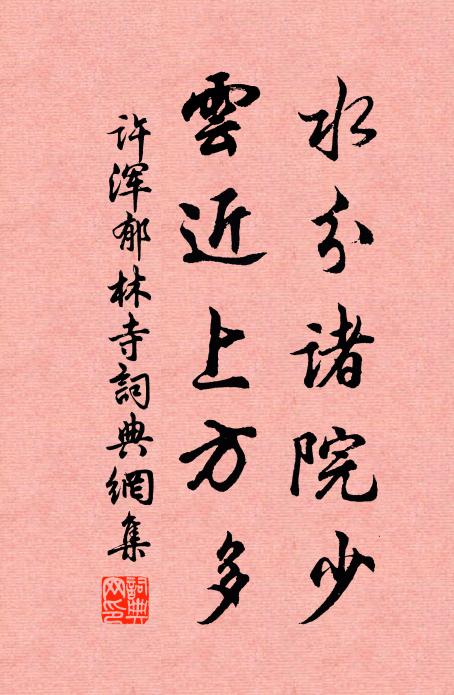 水分諸院少
雲近上方多
许浑郁林寺詞典網集
詞典網印